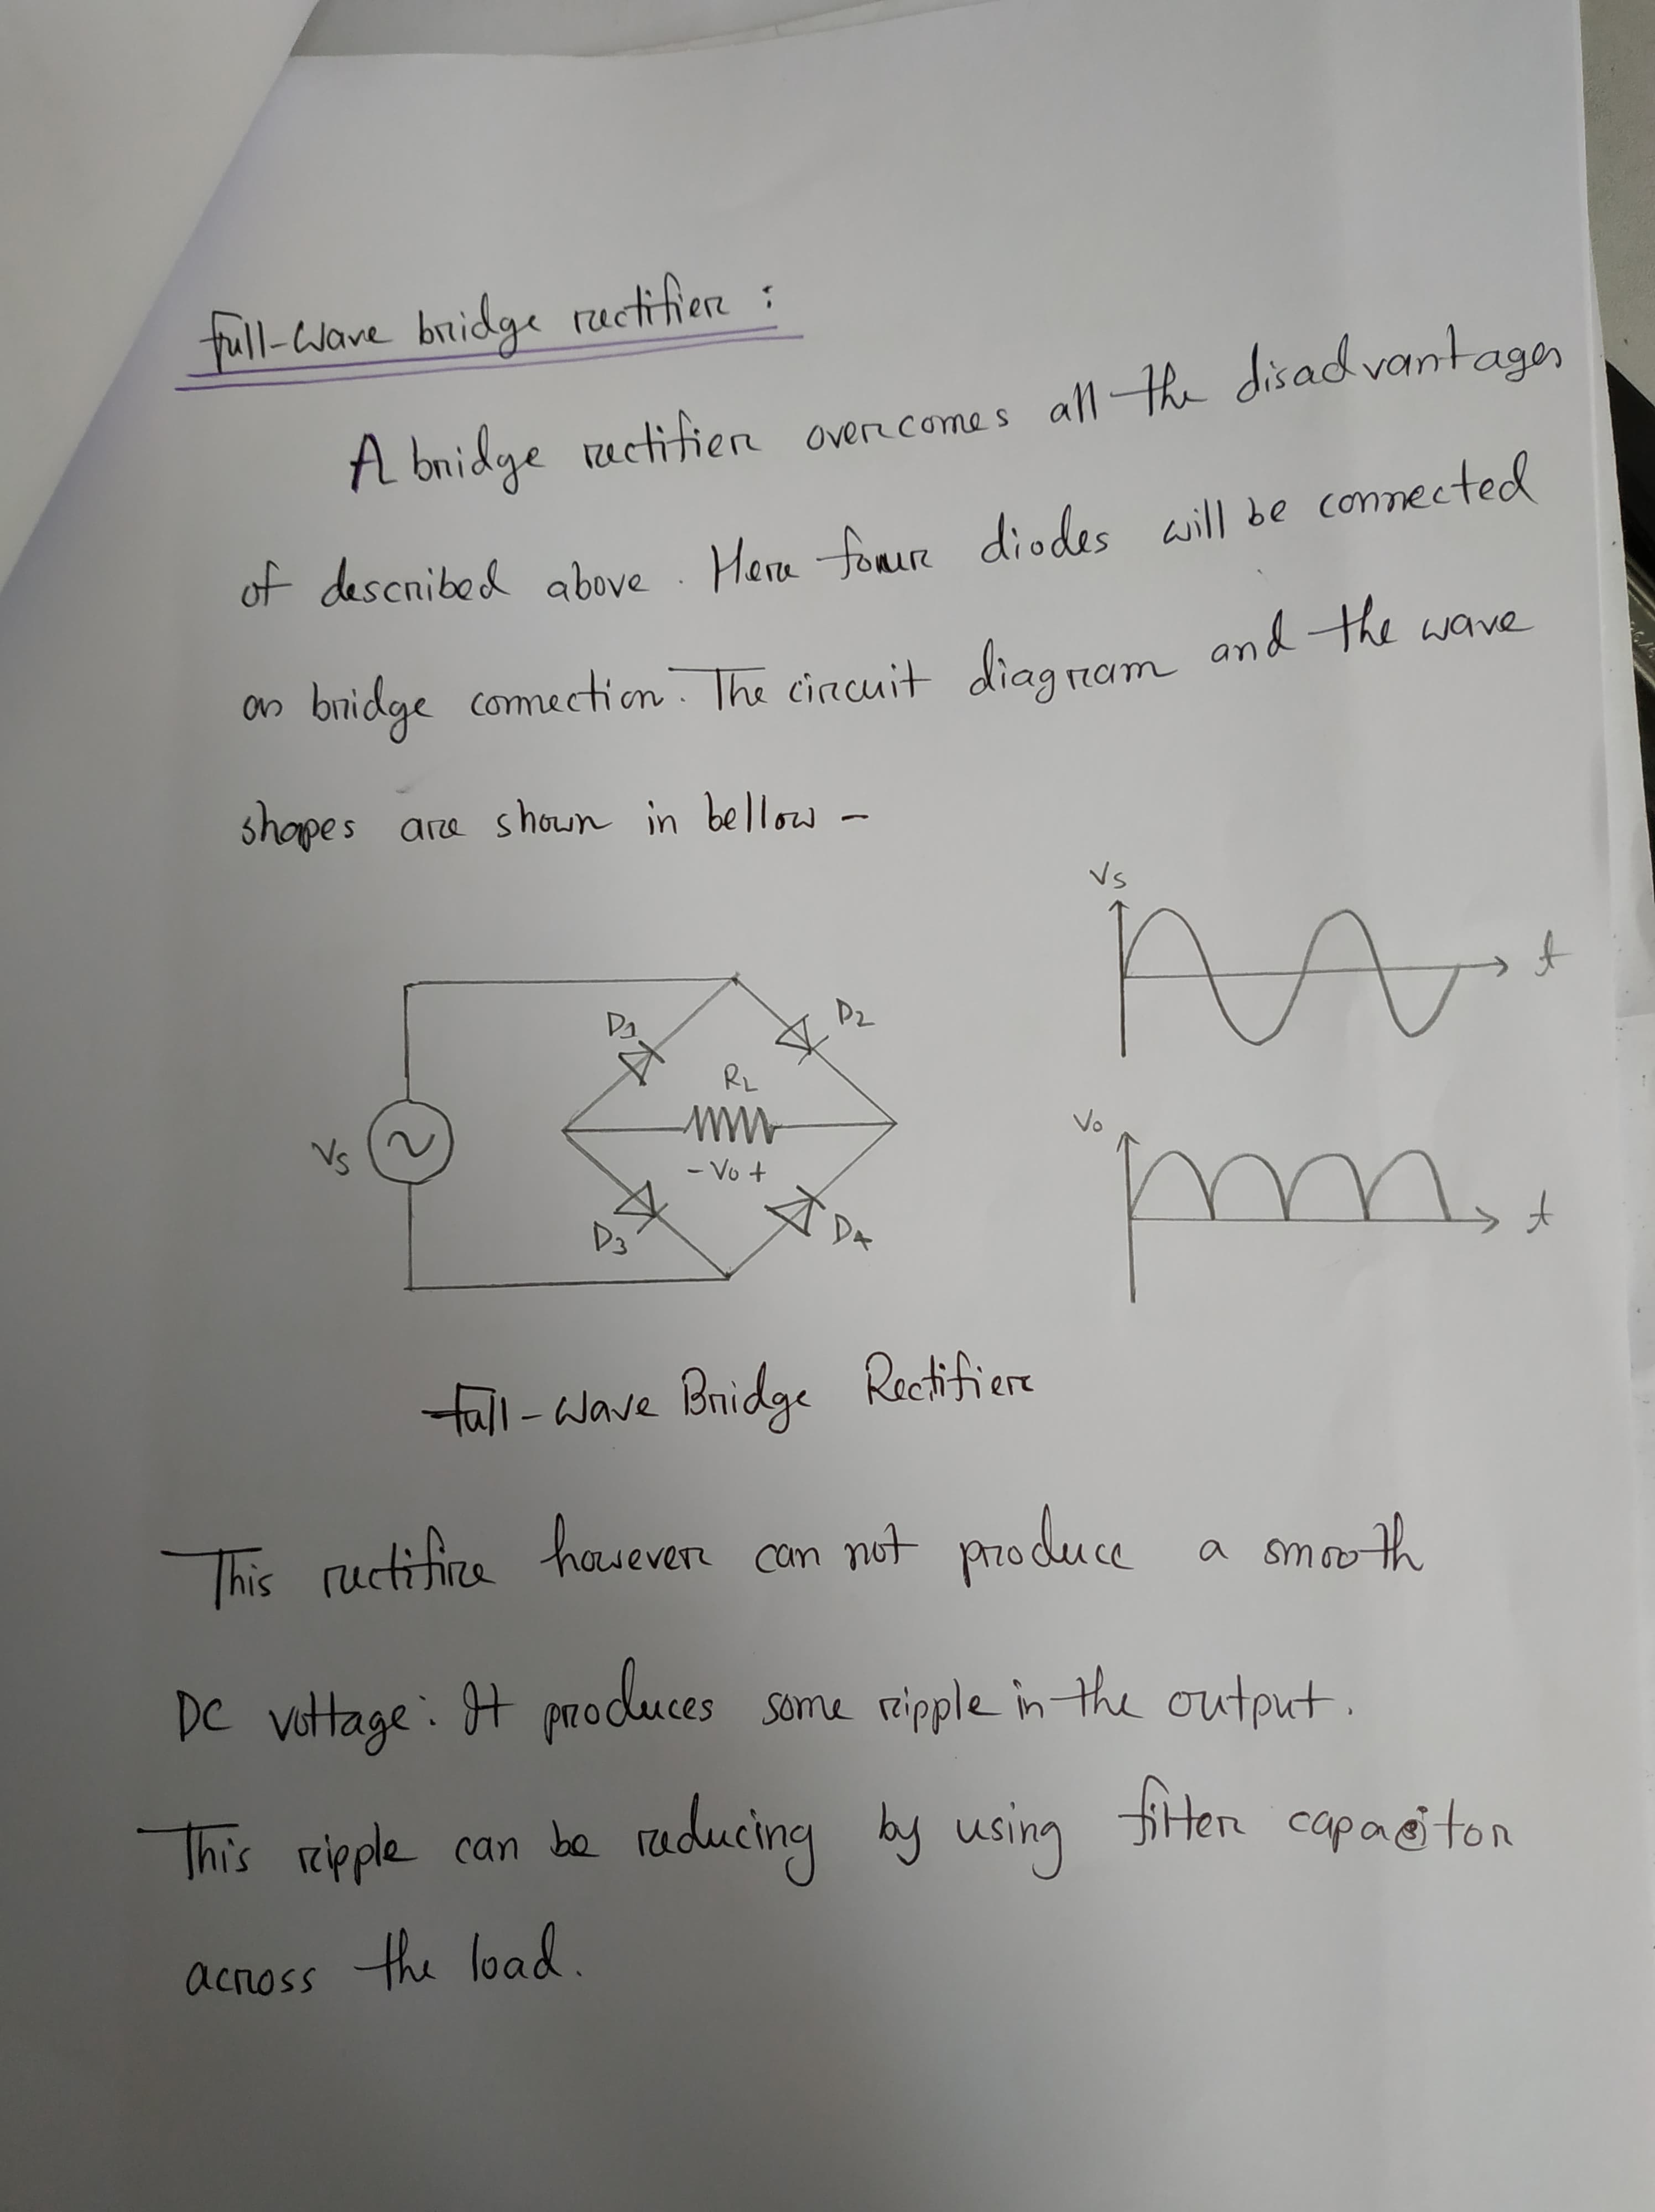 Full-Wave bridge rectifier :
A bridge rectifier overcomes all the disadvantages
of described above. Here four diodes will be connected
as bridge connection. The circuit diagram and the wave
shapes are shown in bellow -
Vs
t
D1
D2
RL
Vo
Vs
- Vo +
t
D3
D4
Full-Wave Bridge Rectifier
This rectifire however can not produce a smooth
DC voltage: It produces some ripple in the output.
This ripple can be reducing by using filter capacitor
across the load.